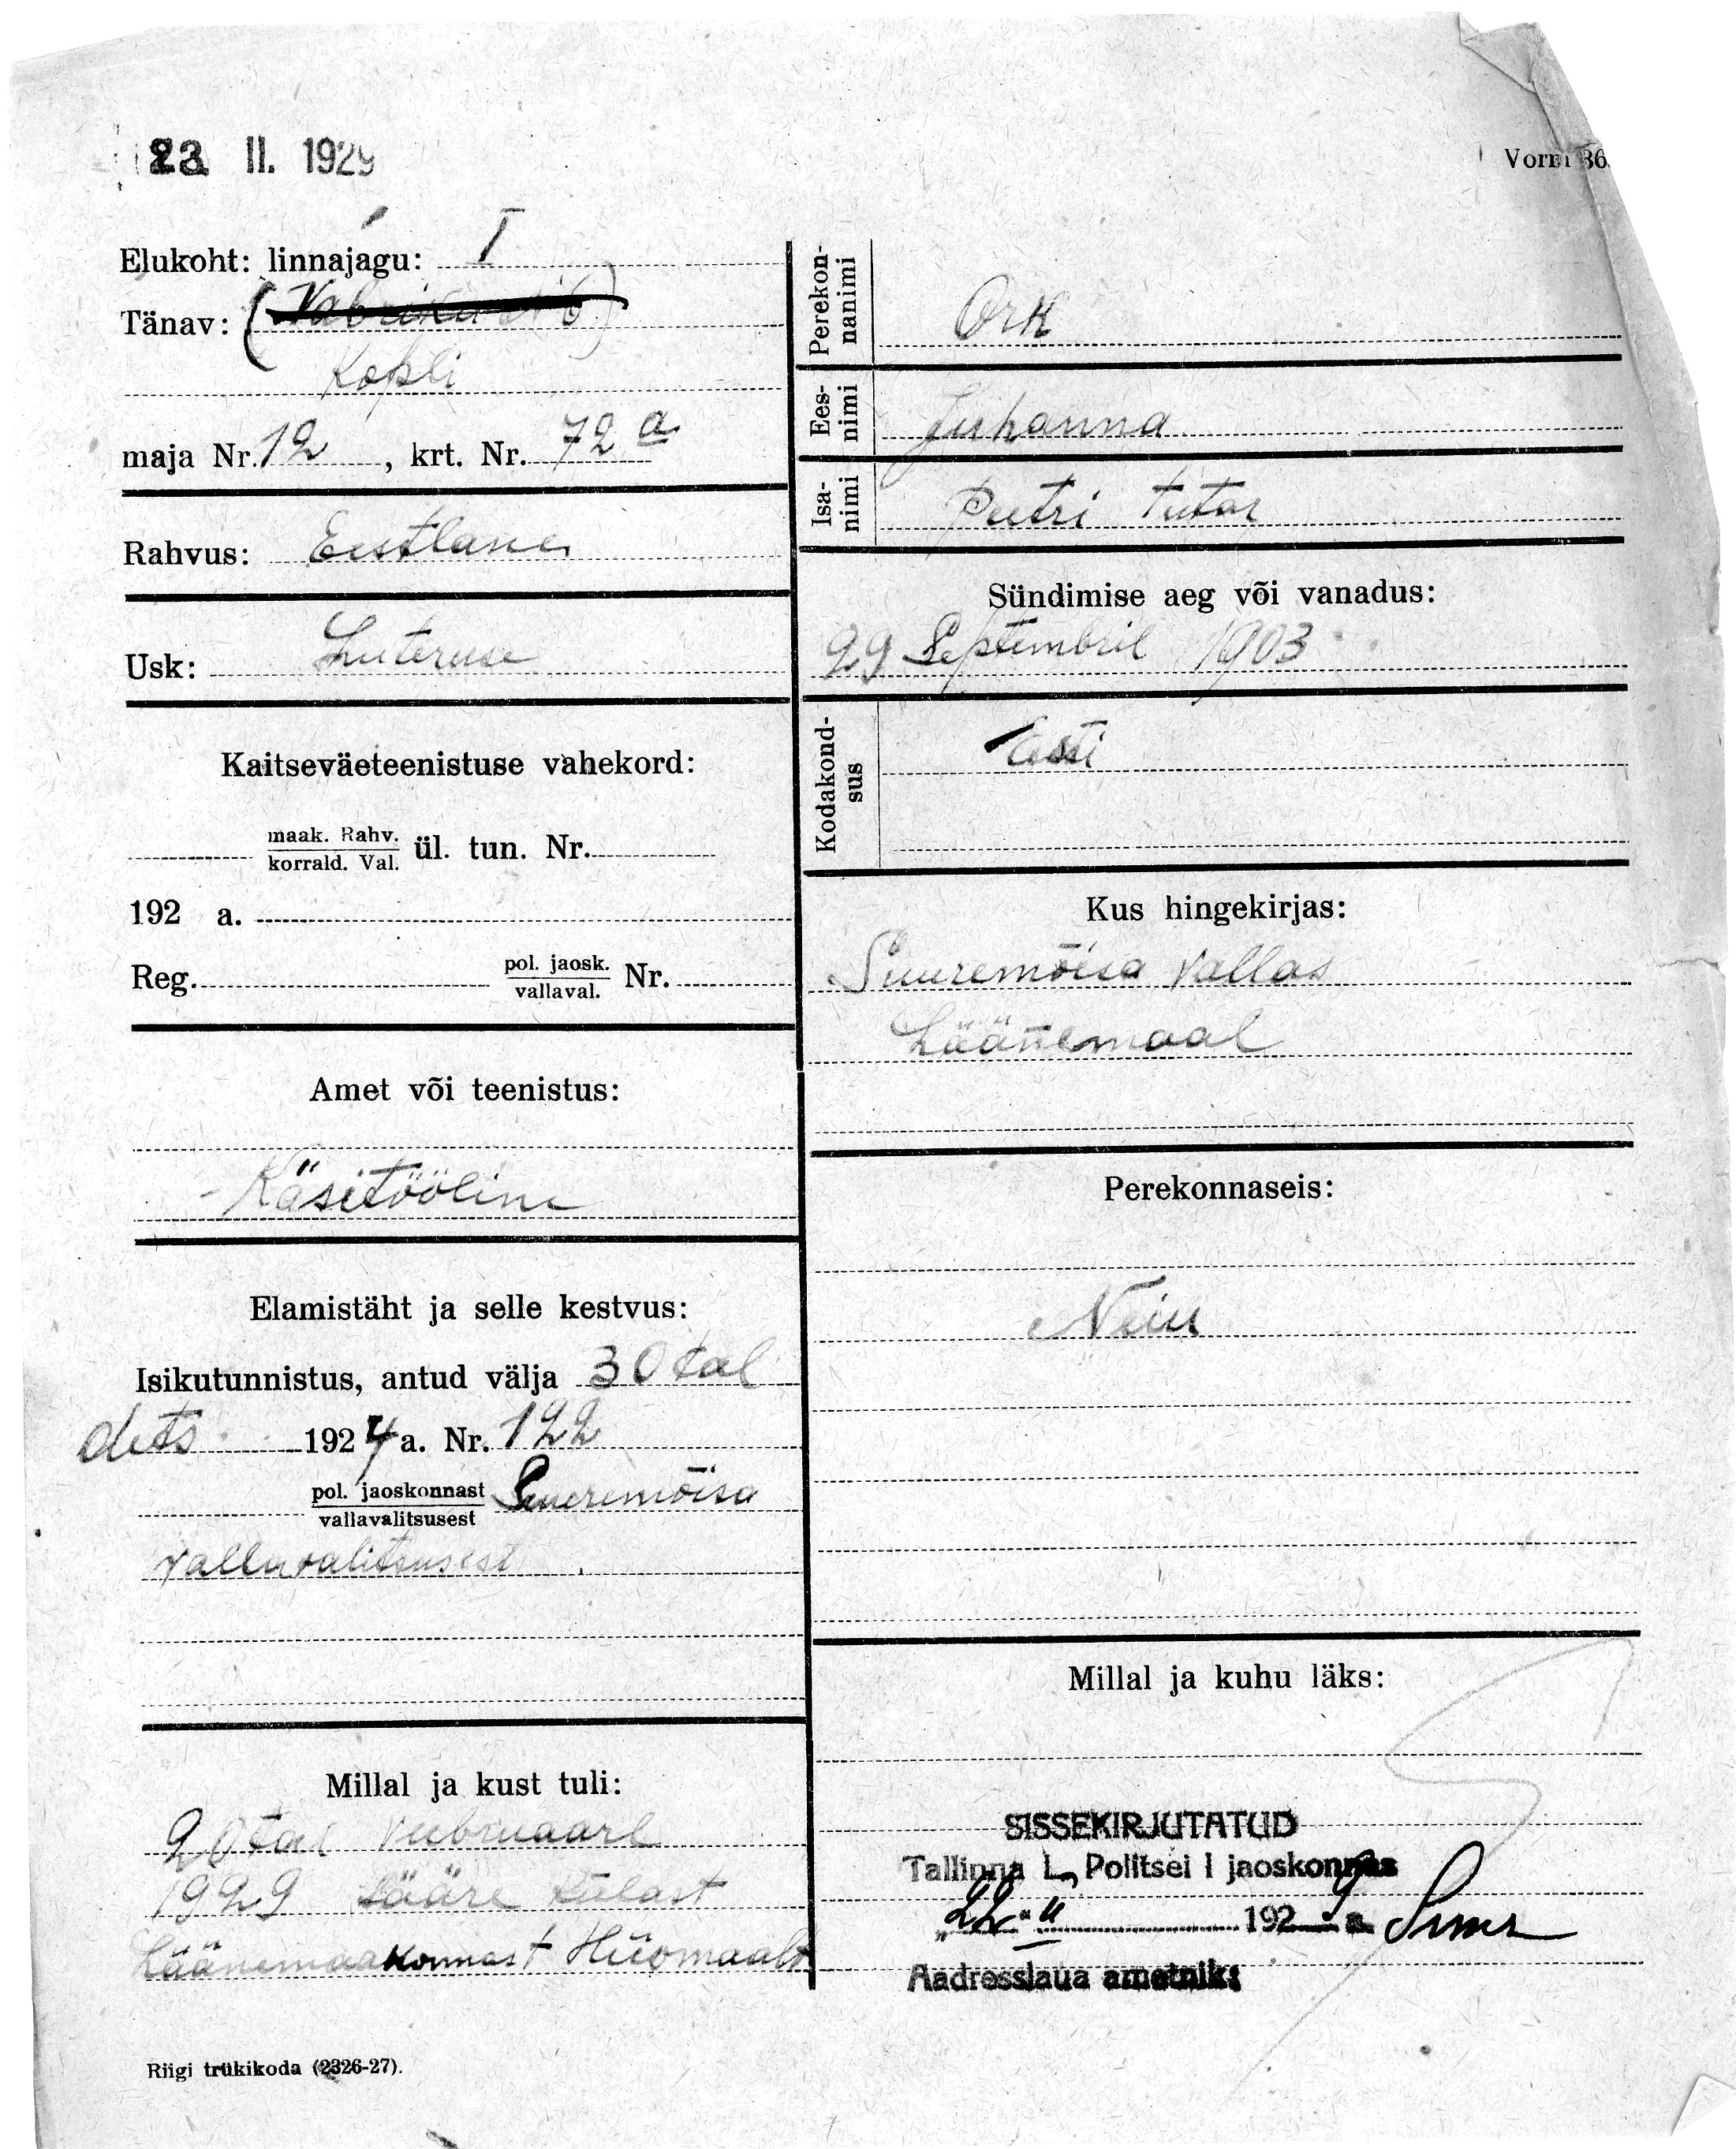 23 II. 1929
Vorm 36
Elukoht: linnajagu: I
Tänav: (Vabriku
Kopli
maja Nr. 12, krt. Nr. 72 a
Rahvus: Eestlane
Usk: Luteruse
Kaitseväeteenistuse vahekord:
maak. Rahv.
korrald. Val. ül. tun. Nr.
192 a.
Reg. pol. jaosk.
vallaval. Nr.
Amet või teenistus:
Käsitööline
Elamistäht ja selle kestvus:
Isikutunnistus, antud välja 30tal
dets 1924 a. Nr. 122
pol. jaoskonnast
vallavalitsusest Suuremõisa
vallavalitsusest
Millal ja kust tuli:
20tal veebruaril
1929 Sääre külast
Läänemaakonnast Hiiomaalt
Riigi trükikoda (2326-27).
Perekonnanimi Ork
Eesnimi Juhanna
Isanimi Peetri tütar
Sündimise aeg või vanadus:
29 Septembril 1903
Kodakondsus Eesti
Kus hingekirjas:
Suuremõisa vallas
Läänemaal
Perekonnaseis:
Neiu
Millal ja kuhu läks:
SISSEKIRJUTATUD
Tallinna L. Politsei I jaoskonnas
"22" II 1929 a.
Aadresslaua ametnik: